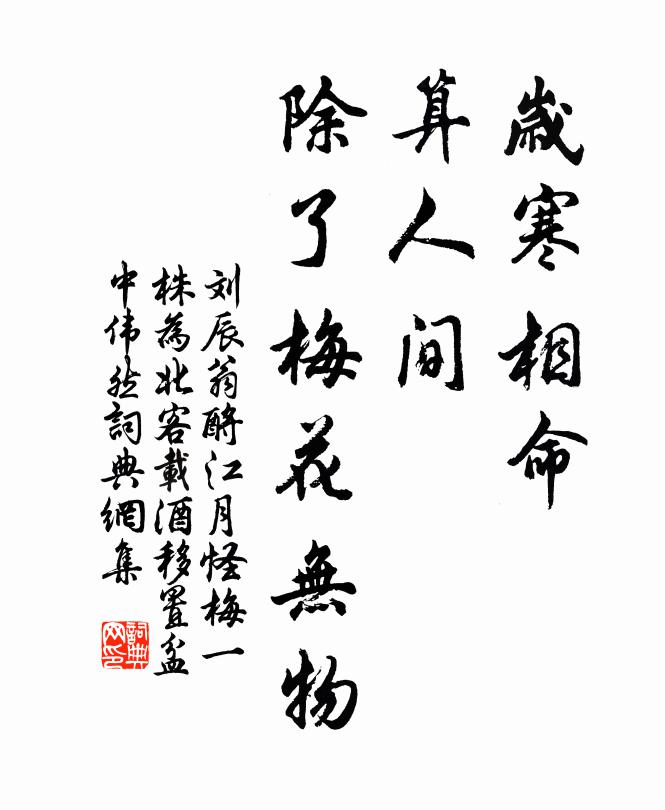 歲寒相命
算人間
除了梅花無物
刘辰翁酹江月怪梅一
株為北客載酒移置盆
中伟然詞典網集
詞典
网印